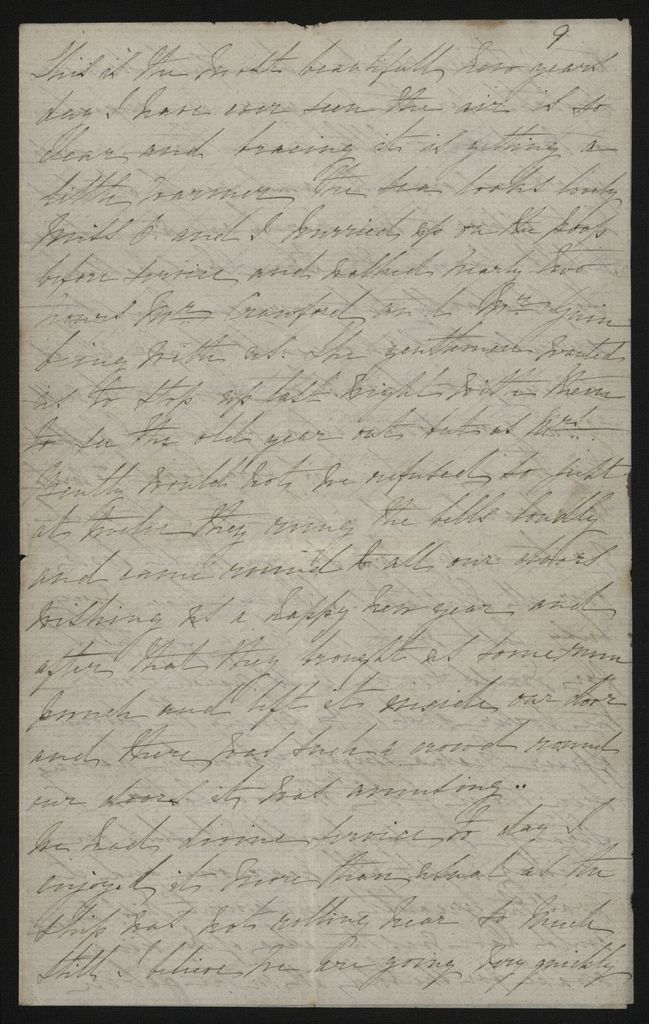 9
This is the most beautifull new years
day I have ever seen the air is so
clear and bracing it is getting a
little warmer The sea looks lovely
Miss P. and I hurried up on the poop
before service and walked nearly two
hours Mr Crawford and Mr
being with us. The gentlemen wanted
us to stop up last night with them
to see the old year out but as Mrs
would not we refused so just
at twelve they rung the bells loudly
and came round to all our doors
wishing us a happy new year and
after that they brought us some rum
punch and left it inside our door
and there was such a crowd round
our doors it was amusing..
We had divine service to day I
enjoyed it more than usual as the
ship was not rolling near so much
still I believe we are going very quickly